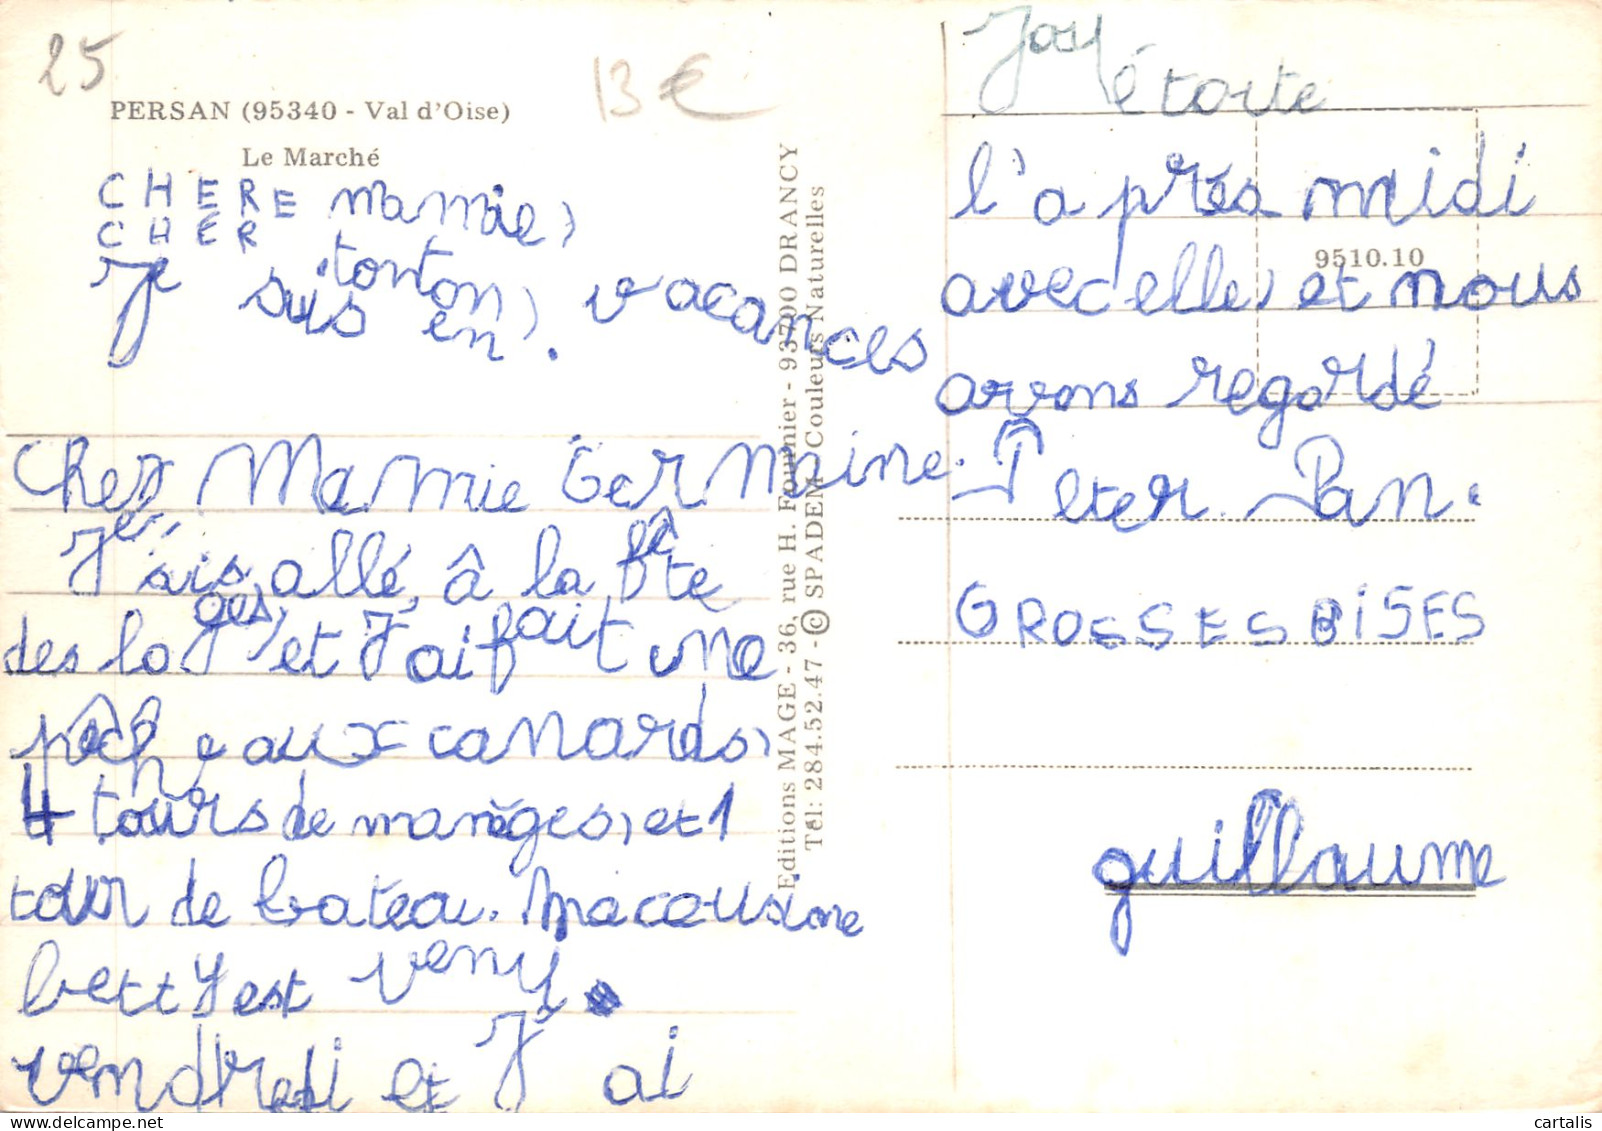 25
13 €
PERSAN (95340 - Val d'Oise)
Le Marché
CHERE Mamie,
CHER tonton,
Je suis en . vacances
chez Mamie Germaine.
Je sais allé, â la fête
des loges, et J'ai fait une
pêche aux canards,
4 tours de manèges, et 1
tour de bateau. Ma cousine
betty est veny.
vendredi et J' ai
Editions MAGE - 36, rue H. Fournier - 93700 DRANCY
Tél: 284.52.47 - © SPADEM Couleurs Naturelles
Josy
étoite
l'aprés midi
avec elle, et nous
9510.10
avons regardé
Peter. Pan.
GROSSES BISES
guillaume
cartalis.com